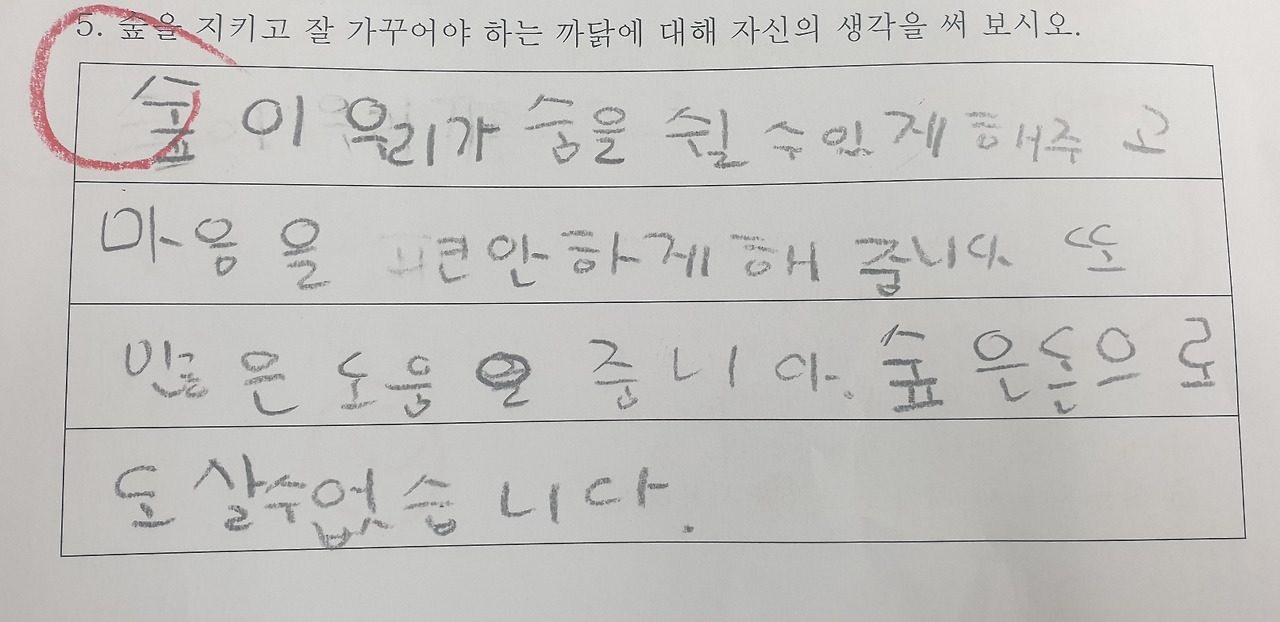 5. 숲을 지키고 잘 가꾸어야 하는 까닭에 대해 자신의 생각을 써 보시오.
숲이 우리가 숨을 쉴 수 있게 해주고
마음을 편안하게 해 줍니다 또
많은 도움을 줍니다. 숲은 돈으로
도 살수 없습니다.